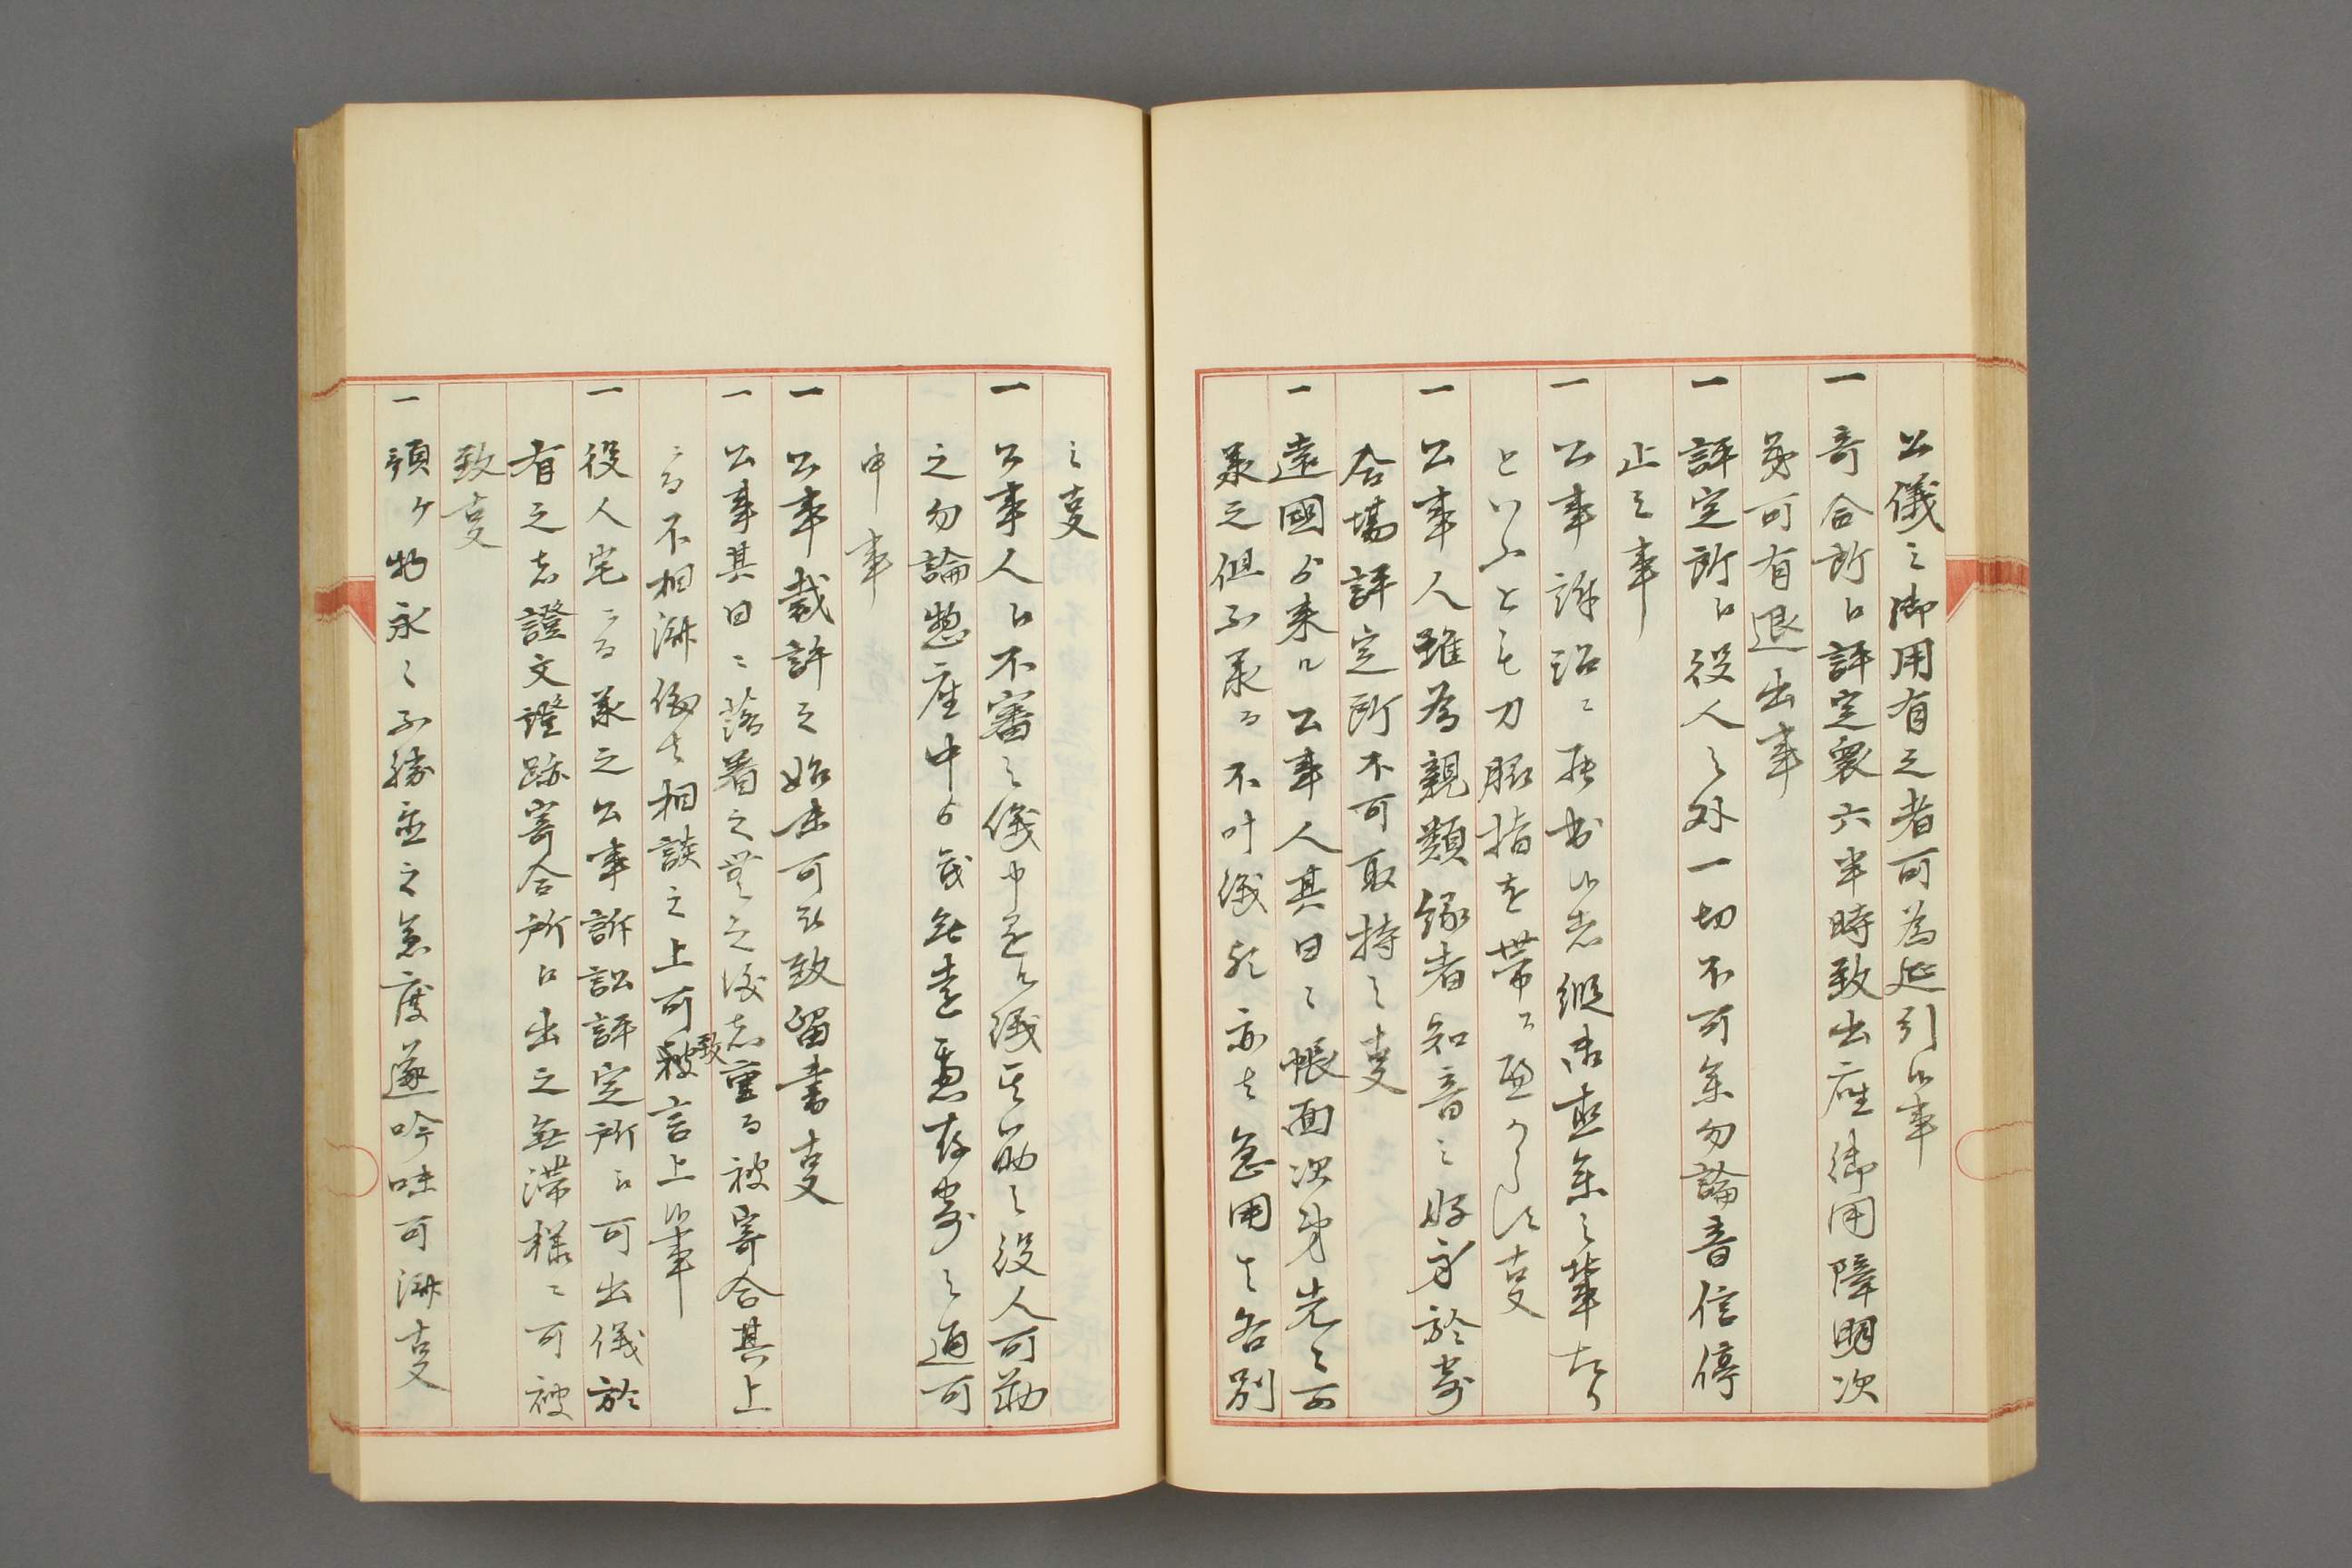 公儀之御用有之者可為延引候事
一寄合所江評定衆六半時致出座御用障明次
第可有退出事
一評定所江役人之外一切不可参勿論音信停
止之事
一公事訴訟ニ罷出候者縦御直参之輩たり
といふとも刀脇指を帯ニ
一公事人雖為親類縁者知音之好身於寄
合場評定所不可取持之事
一遠國ゟ来ル公事人其日之帳面次第先之可
承之但不承而不叶儀歟亦者急用者各別
之事
一公事人江不審之儀申達候儀其筋之役人可勤
之勿論惣座中ゟ或無遠慮存寄之通可
申事
一公事裁許之始末可致留書事
一公事其日ニ落着之無之後者重而被寄合其上
ニ而不相済儀者相談之上可被致言上候事
一役人宅ニ而承之公事訴訟評定所江可出儀於
有之者證文證跡寄合所江出之無滞様ニ可被
致事
一預ケ物永々不勝直之急度遂吟味可済事